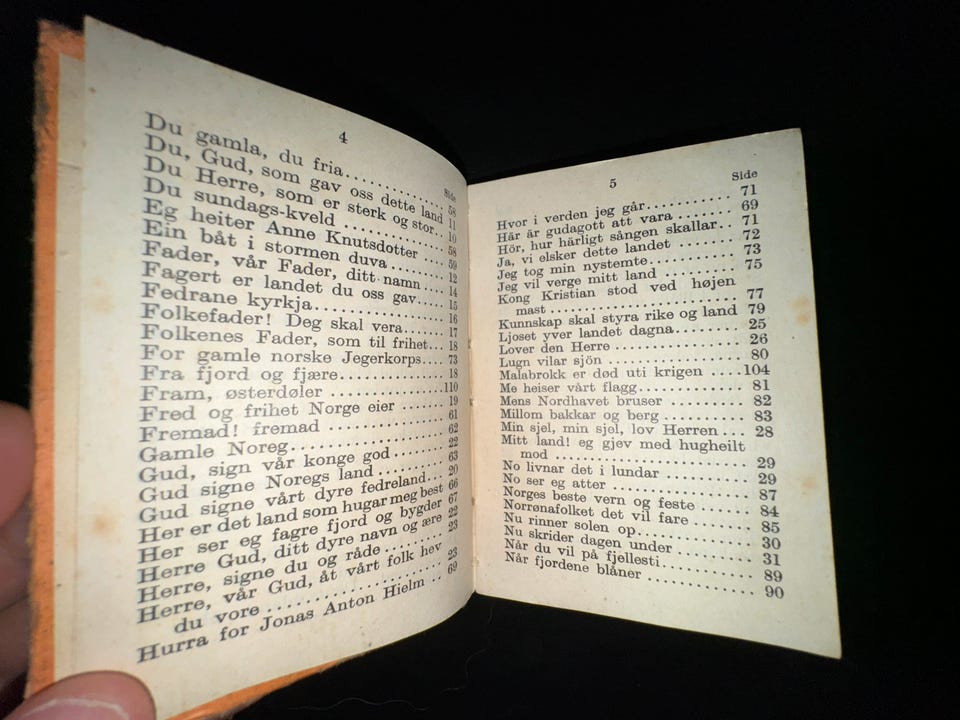 4
Side
Du gamla, du fria ............ 58
Du, Gud, som gav oss dette land 11
Du Herre, som er sterk og stor .. 10
Du sundags-kveld ............ 58
Eg heiter Anne Knutsdotter ... 59
Ein båt i stormen duva ......... 12
Fader, vår Fader, ditt navn .... 14
Fagert er landet du oss gav..... 15
Fedrane kyrkja ............... 16
Folkefader! Deg skal vera...... 17
Folkenes Fader, som til frihet... 18
For gamle norske Jegerkorps.... 73
Fra fjord og fjære............. 18
Fram, østerdøler .............. 110
Fred og frihet Norge eier ...... 19
Fremad! fremad ............... 61
Gamle Noreg ................. 62
Gud, sign vår konge god ....... 22
Gud signe Noregs land ........ 63
Gud signe vårt dyre fedreland... 20
Her er det land som hugar meg best 66
Her ser eg fagre fjord og bygder 67
Herre Gud, ditt dyre navn og ære 22
Herre, signe du og råde ........ 23
Herre, vår Gud, åt vårt folk hev
du vore .................... 23
Hurra for Jonas Anton Hielm .. 69
5
Side
Hvor i verden jeg går........... 71
Här är gudagott att vara ....... 69
Hör, hur härligt sången skallar.. 71
Ja, vi elsker dette landet ....... 72
Jeg tog min nystemte .......... 73
Jeg vil verge mitt land ......... 75
Kong Kristian stod ved højen
mast ..................... 77
Kunnskap skal styra rike og land 79
Ljoset yver landet dagna........ 25
Lover den Herre .............. 26
Lugn vilar sjön ............... 80
Malabrokk er død uti krigen ....104
Me heiser vårt flagg............ 81
Mens Nordhavet bruser ........ 82
Millom bakkar og berg ......... 83
Min sjel, min sjel, lov Herren ... 28
Mitt land! eg gjev med hugheilt
mod ..................... 29
No livnar det i lundar ......... 29
No ser eg atter ............... 87
Norges beste vern og feste ...... 84
Norrønafolket det vil fare ...... 85
Nu rinner solen op............. 30
Nu skrider dagen under ........ 31
Når du vil på fjellesti .......... 89
Når fjordene blåner ............ 90